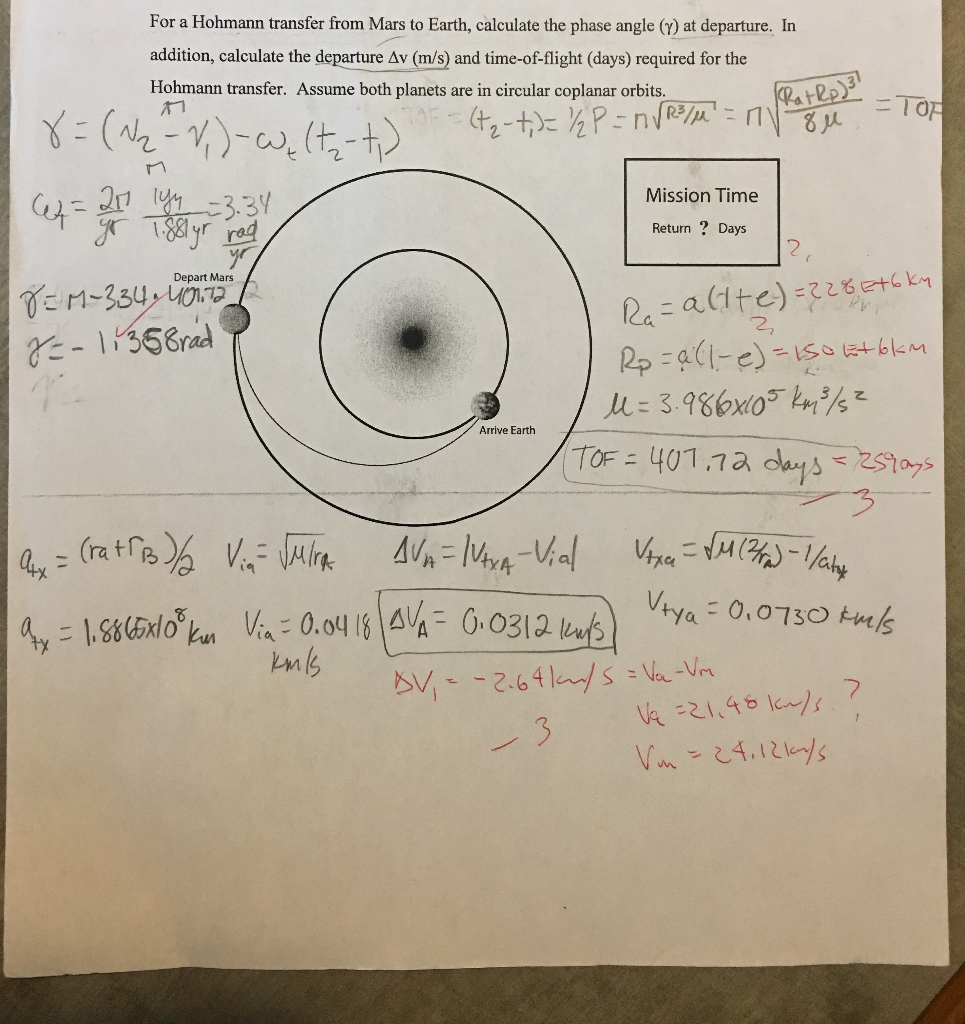 For a Hohmann transfer from Mars to Earth, calculate the phase angle (γ) at departure. In
addition, calculate the departure Δv (m/s) and time-of-flight (days) required for the
Hohmann transfer. Assume both planets are in circular coplanar orbits.
γ = (ν₂ - ν₁) - ω_t (t₂ - t₁)
TOF = (t₂ - t₁) = ½ P = π√(R³/μ) = π√((Ra+Rp)³/8μ) = TOF
π
π
ω_t = 2π/yr 1yr/1.881yr = 3.34 rad/yr
Mission Time
Return ? Days
Depart Mars
γ = π - 3.34 · 407.72
γ = - 1.358 rad
Ra = a(1+e) = 228 E+6 km
?
Rp = a(1-e) = 150 E+6 km
?
μ = 3.986x10⁵ km³/s²
Arrive Earth
TOF = 407.72 days = 259 days
- 3
a_tx = (ra + r_B)/2
V_ia = √(μ/r_A)
ΔV_A = |V_txA - V_ia|
V_txa = √(μ(2/ra) - 1/a_tx
a_tx = 1.8865x10⁸ km
V_ia = 0.0418 km/s
ΔV_A = 0.0312 km/s
V_txa = 0.0730 km/s
ΔV₁ = -2.64 km/s = Va - Vm
Va = 21.48 km/s ?
- 3
Vm = 24.12 km/s